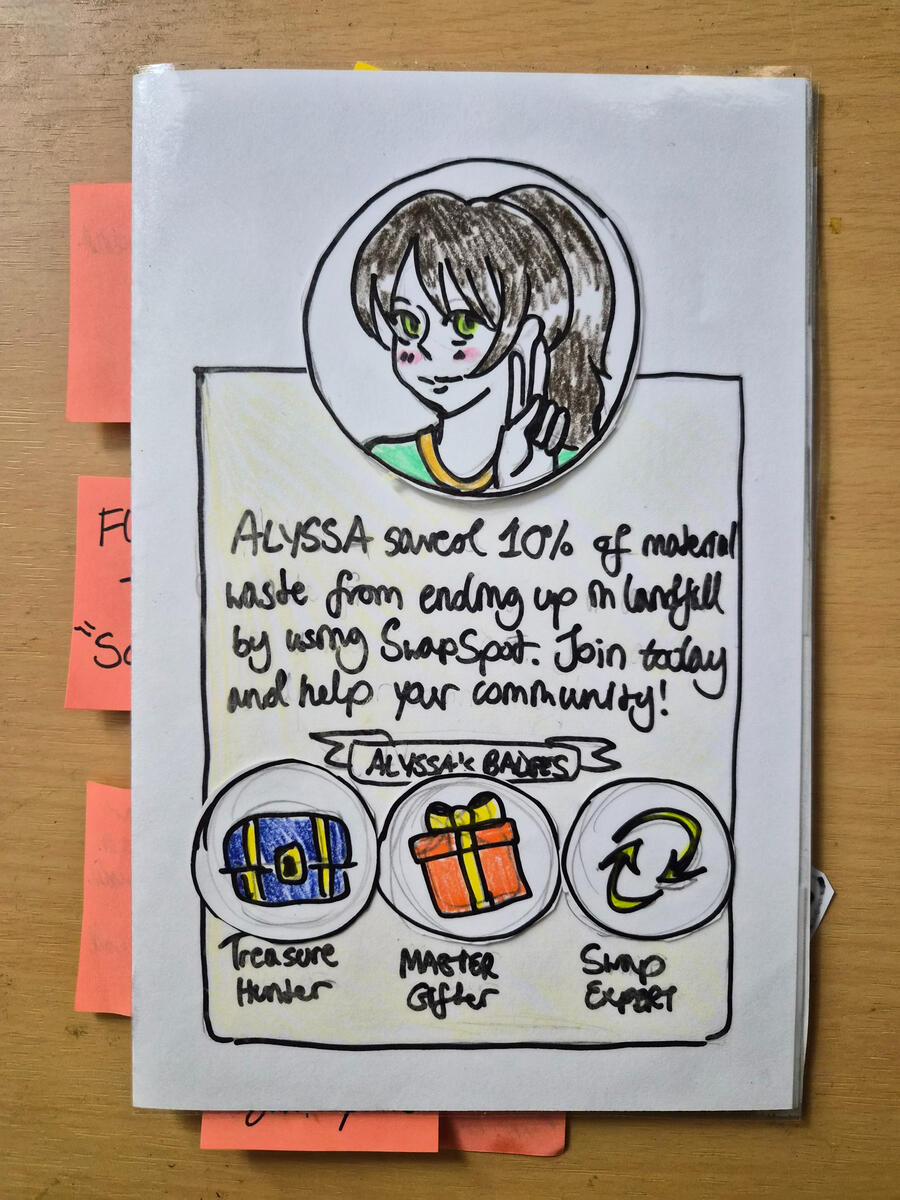 ALYSSA saved 10% of material
waste from ending up in landfill
by using SwapSpot. Join today
and help your community!
ALYSSA's BADGES
Treasure
Hunter
MASTER
Gifter
Swap
EXPERT